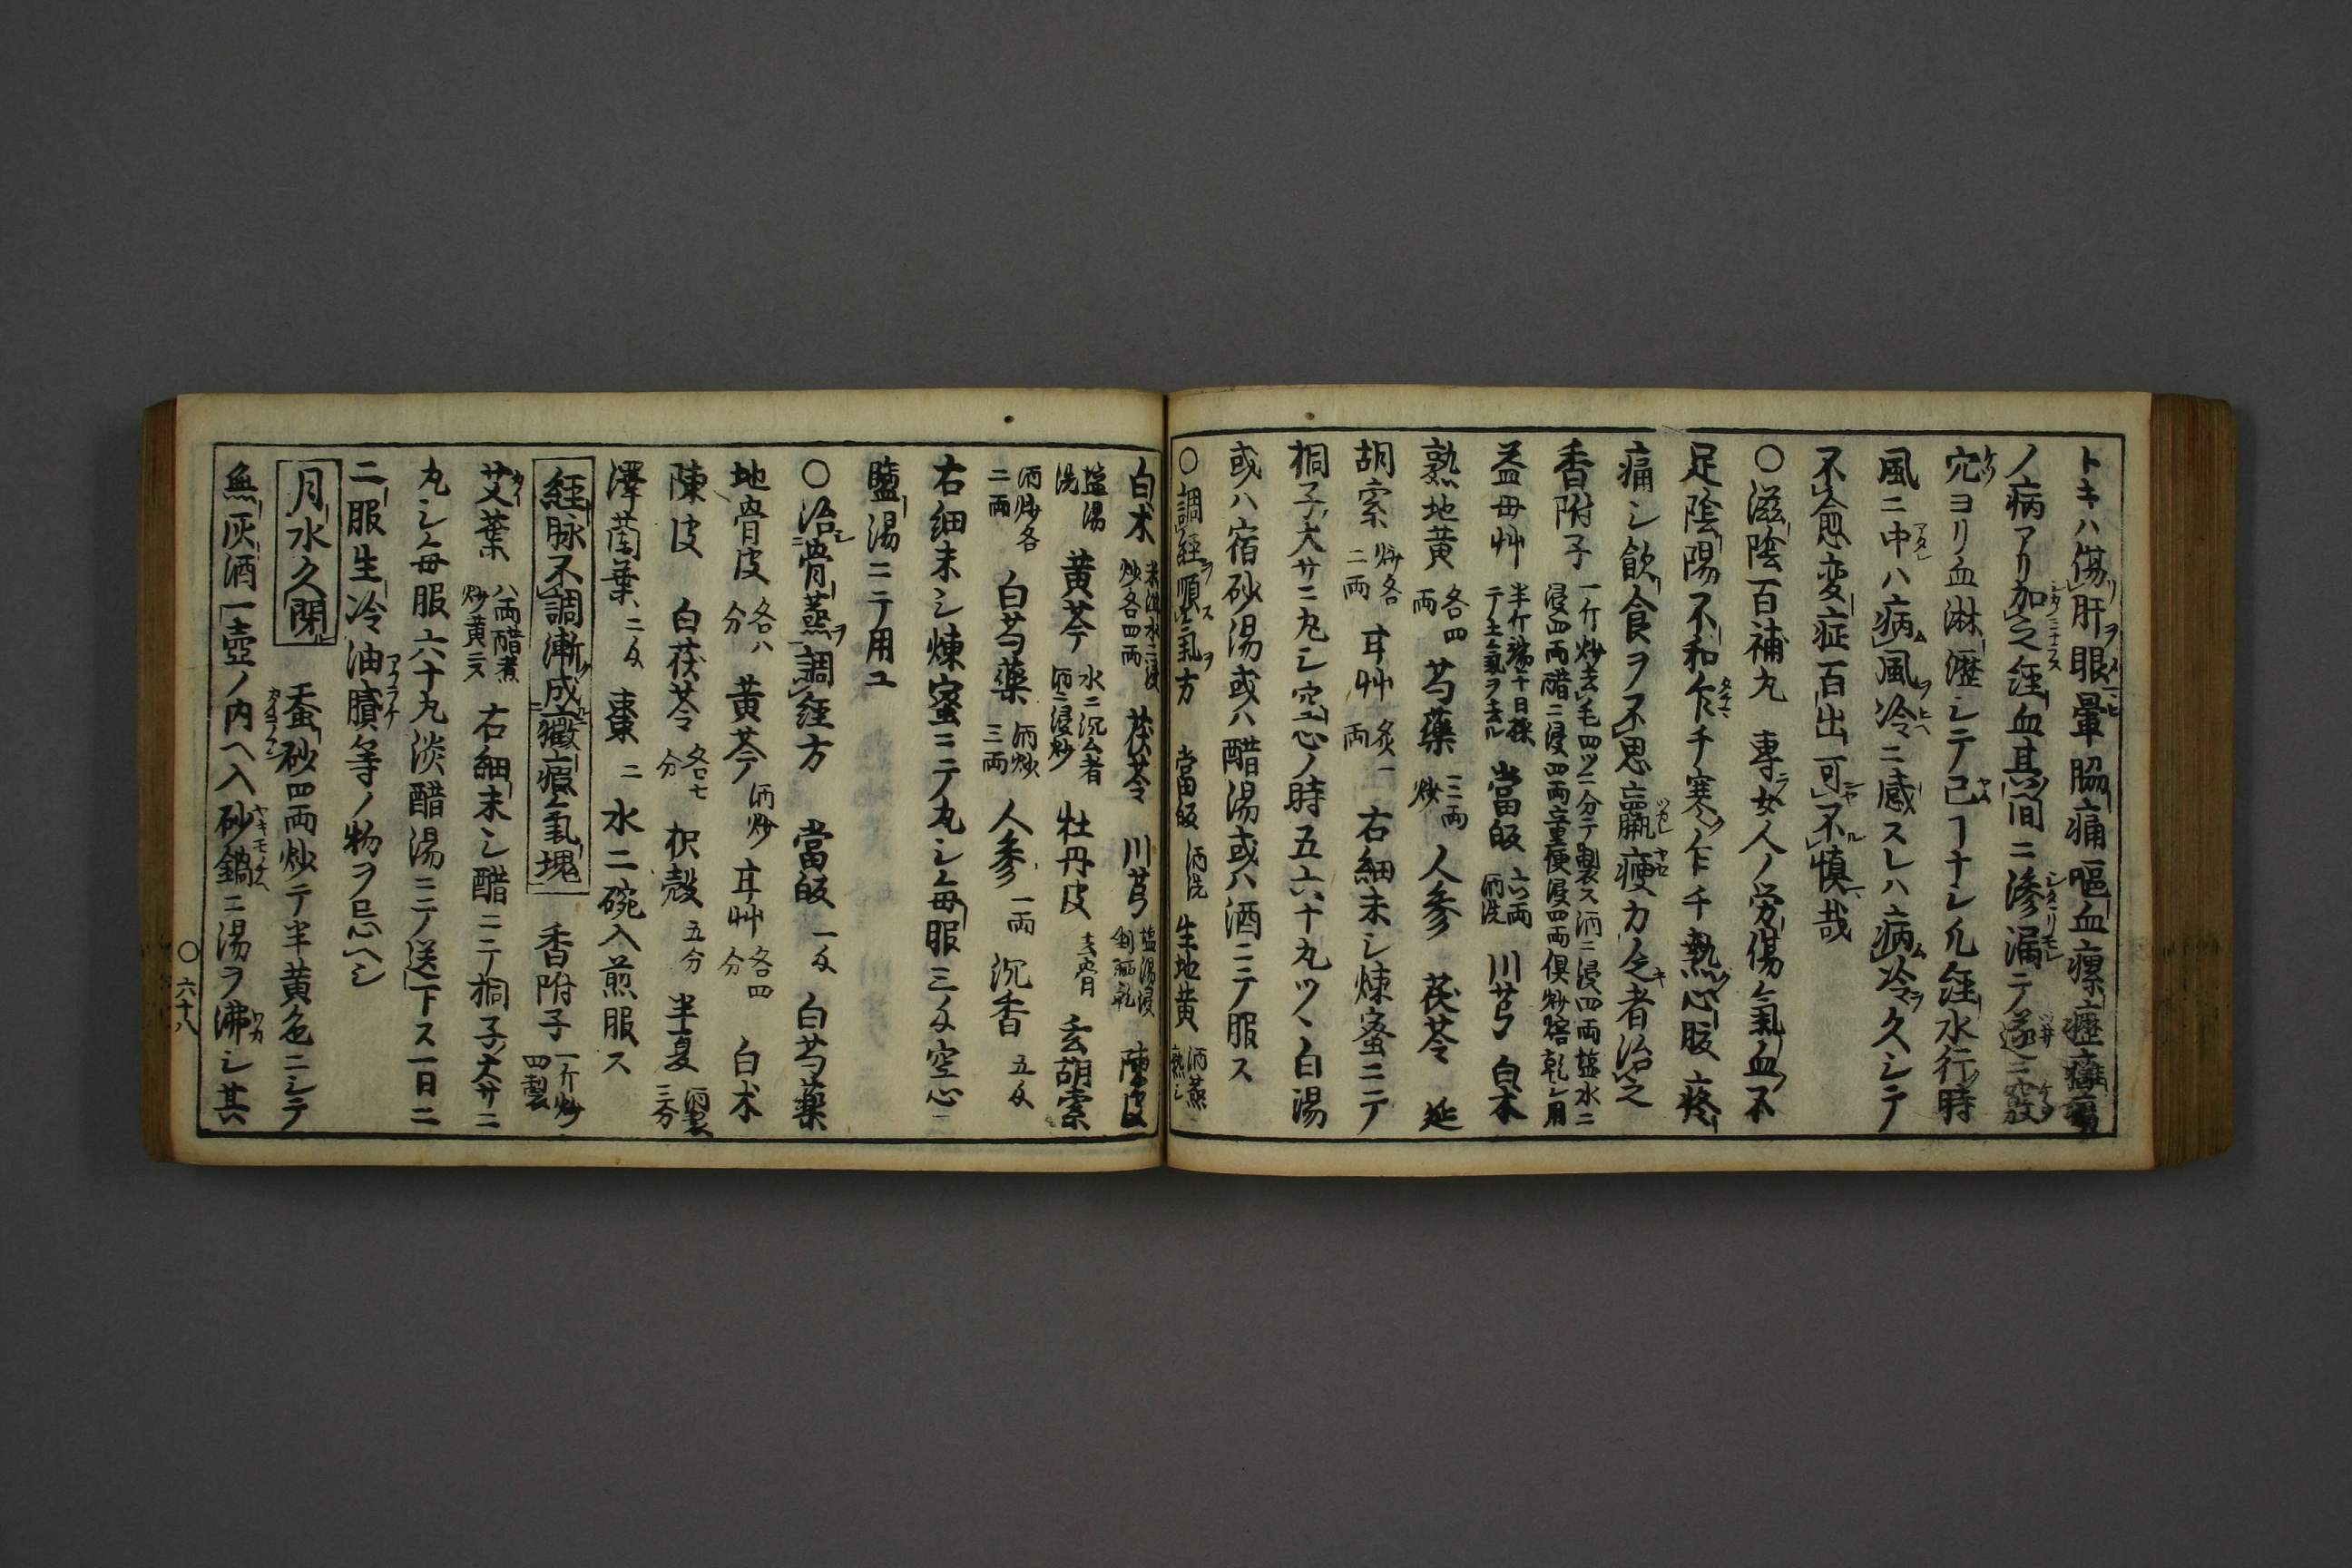 トキハ傷肝ヲ眼暈脇痛嘔血瘰癧癰瘍
ノ病アリ加之経血其間ニ滲漏テ遂ニ竅
穴ヨリ血淋瀝シテ已ヿナシ凡経水行時
風ニ中ハ病風冷ニ感スレハ病冷久シテ
不愈変症百出可不慎哉
○滋陰百補丸　専女人ノ労傷気血不
足陰陽不和乍チ寒乍チ熱心腹疼
痛シ飲食ヲ不思尫羸痩力乏者治之
香附子 一斤炒去毛四ツニ分テ製ス酒ニ浸四両塩水ニ浸四両醋ニ浸四両童便浸四両倶炒焙乾シ用
益母艸 半斤端午日採テ土気ヲ去ル 當皈 六両酒洗 川芎 白朮
熟地黄 各四両 芍薬 三両炒 人参 茯苓 延
胡索 炒各二両 甘艸 炙一両 右細末シ煉蜜ニテ
桐子大サニ丸シ空心ノ時五六十丸ツヽ白湯
或ハ宿砂湯或ハ醋湯或ハ酒ニテ服ス
○調経順気方 當皈 酒洗 生地黄 酒蒸熟シ
白朮 米泔水ニ浸炒各四両 茯苓 川芎 塩湯浸剉晒乾 陳皮
塩湯洗 黄芩 水ニ沉ム者酒ニ浸炒 牡丹皮 去骨 玄胡索
酒炒各二両 白芍薬 酒炒三両 人参 一両 沉香 五匁
右細末シ煉蜜ニテ丸シ毎服三匁空心ニ
塩湯ニテ用ユ
○治骨蒸調経方 當皈 一匁 白芍薬
地骨皮 各八分 黄芩 酒炒 甘艸 各四分 白朮
陳皮 白茯苓 各七分 枳殻 五分 半夏 酒製三分
澤蘭葉 二匁 棗 二 水二碗入煎服ス
経脉不調漸成癥瘕気塊 香附子 一斤炒四製
艾葉 八両醋煮炒黄ニス 右細末シ醋ニテ桐子大サニ
丸シ毎服六十丸淡醋湯ニテ送下ス一日ニ
二服生冷油膩等ノ物ヲ忌ヘシ
月水久閉 蚕砂四両炒テ半黄色ニシテ
無灰酒一壺ノ内ヘ入砂鍋ニ湯ヲ沸シ其
○六十八